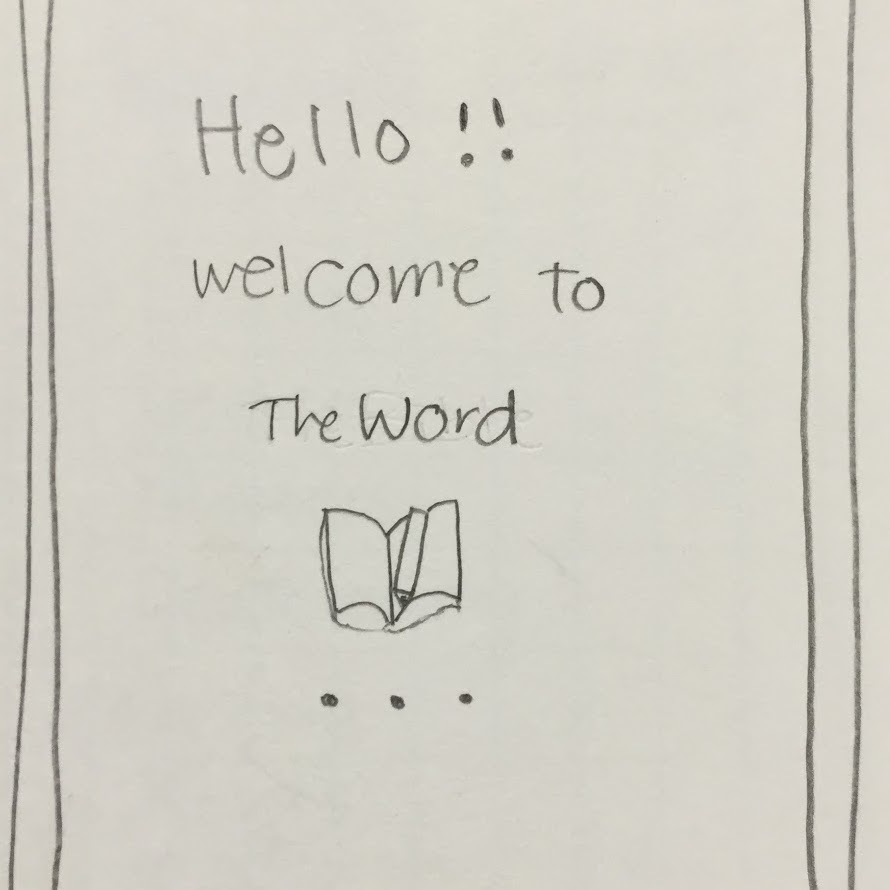 Hello !!
welcome to
The Word
...